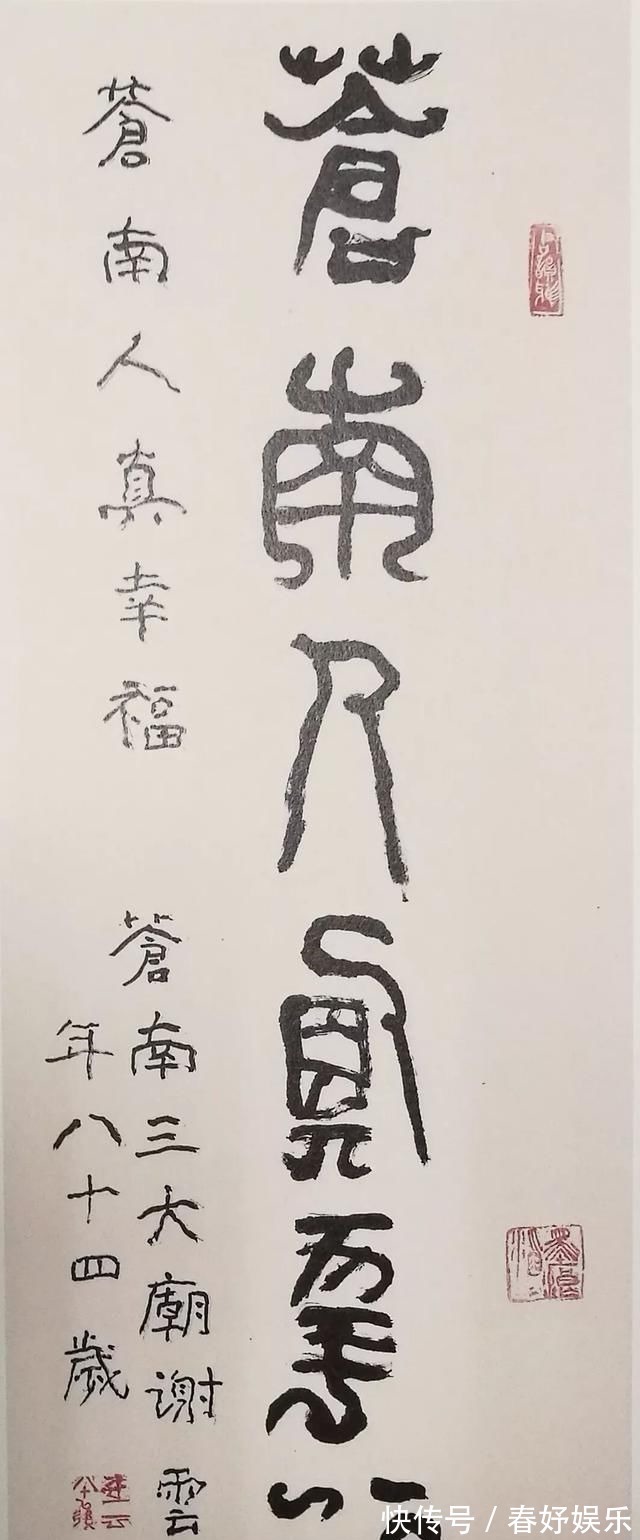 蒼南人真幸
蒼南人真幸福
蒼南三大廟谢雲
年八十四歲
快传号 / 春妤娱乐